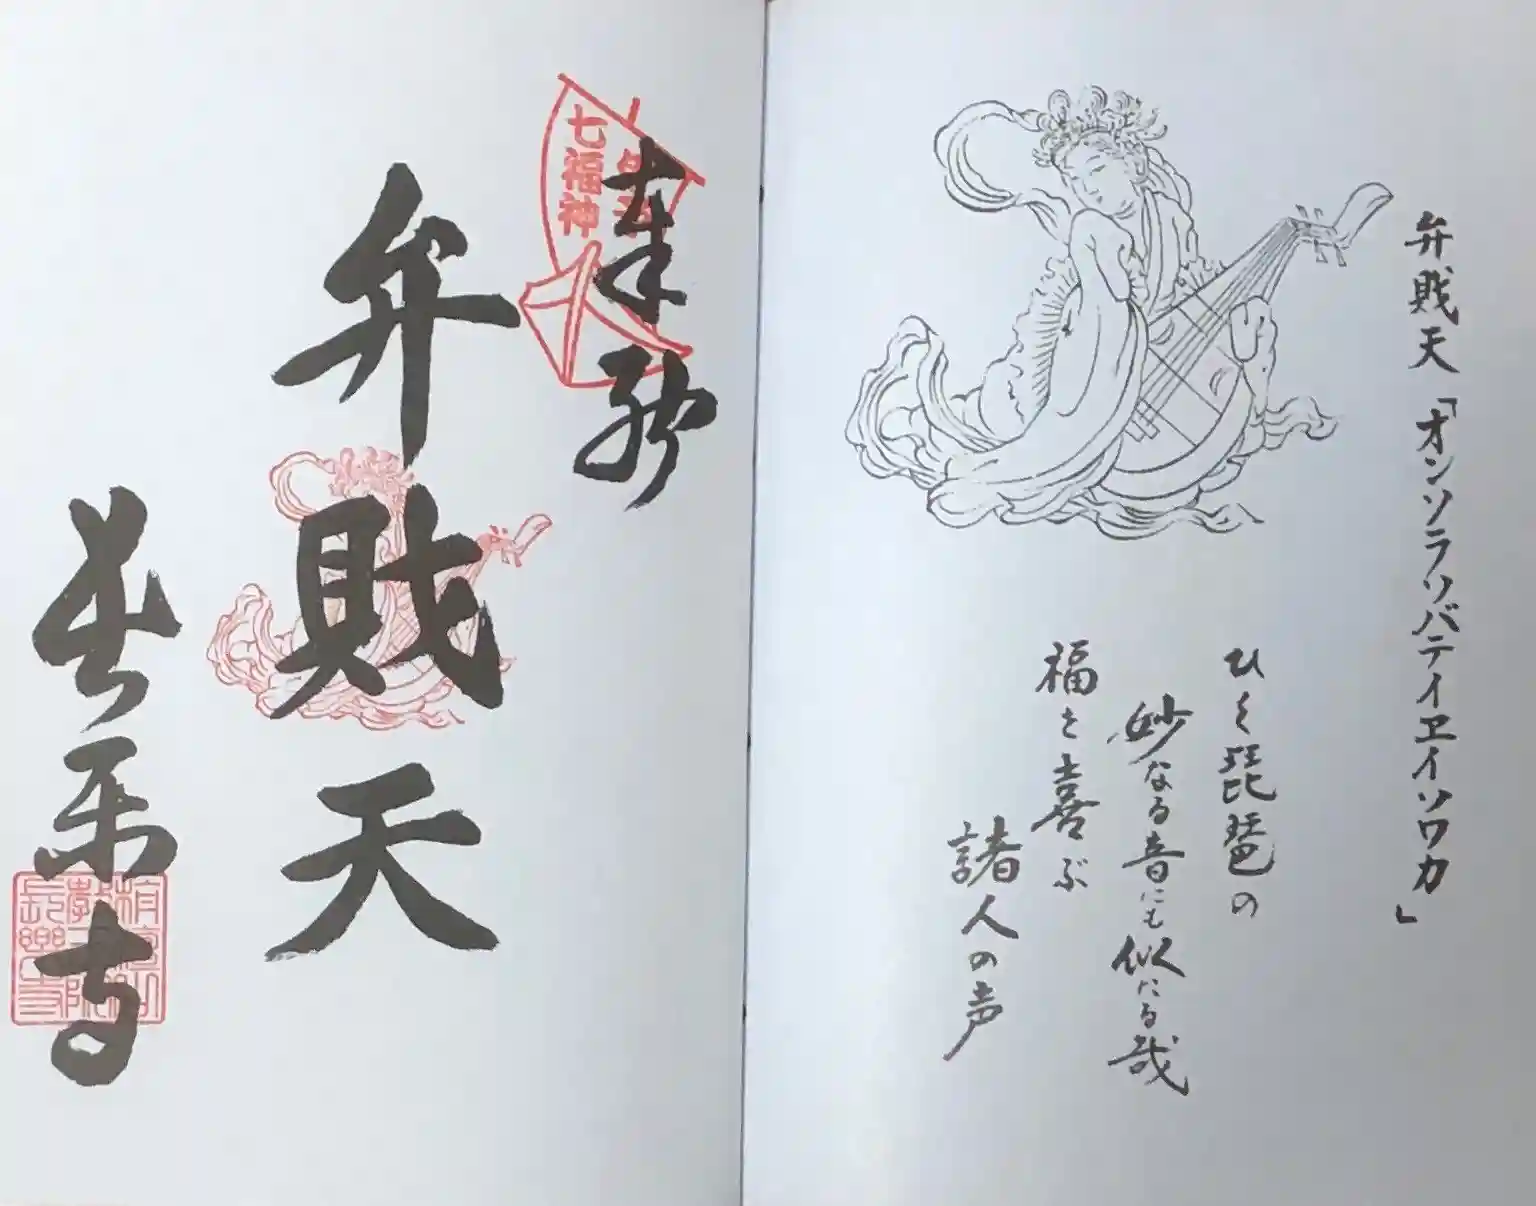 弁財天「オンソラソバテイヱイソワカ」
ひく琵琶の
妙なる音にも似たる哉
福を喜ぶ
諸人の声
奉拝
七福神
弁財天
長楽寺
長楽寺